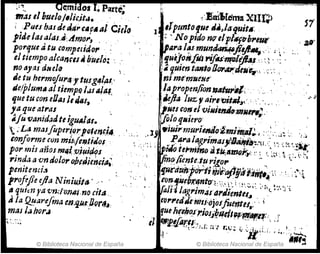 Gemidos I. Parte,
mas el buelo, solicita.
Pues has de dar caça al Cielo
pide las alas à Amor,
porque à tu competidor
el tiempo alcances à buelo;
no ayas duelo
de tu hermosura y tus galas:
desplumal tiempo las alas,
que tu con ellas le das,
ya que atras
a su vanidad te igualas.
La mas superior potencia
conforme con mis sentidos
por mis años mal viuidos
rinda a vn dolor obediencia,
penitencia
professe esta Niniuita
a quien ya vn Jonas no cita
à la Quaresma en que llora,
mas la hora
el
Emblema XIII.
57
el punto que dà, la quita.
No pido no el plaço breue
para las mundanas fiestas,
que son sus risas molestas
à quien tanto llorar deue,
ni me mueue
la propension natural
desta luz y aire vital,
pues con el viuiendo muero,
solo quiero
viuir muriendo à mi mal.
pido termino à tu amor,
sino siente tu rigor
sali lagrimas ardientes,
corred de mis ojos fuentes,
que hechos rios, bueltos mares